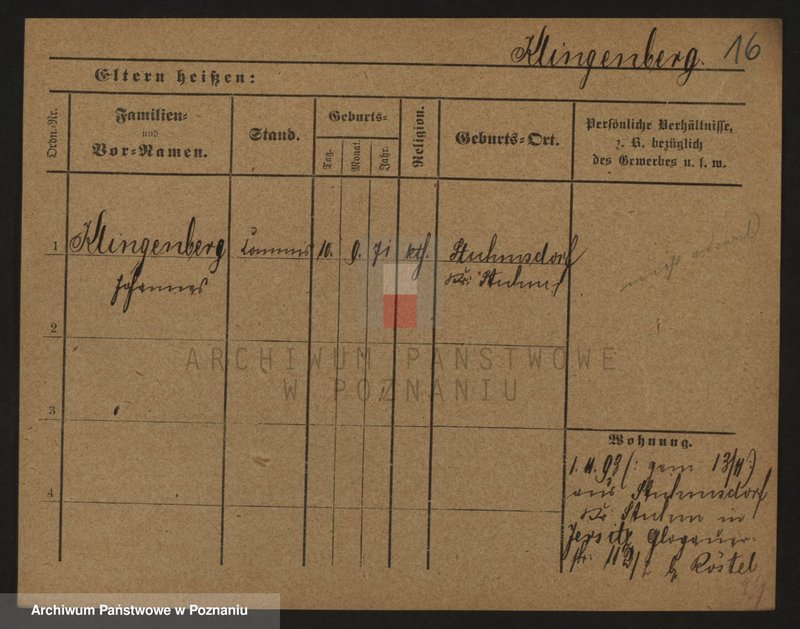 Klingenberg. 16
Eltern heißen:
Ordn.-Nr.
Familien-
und
Vor-Namen.
Stand.
Geburts-
Tag.
Monat.
Jahr.
Religion.
Geburts-Ort.
Persönliche Verhältnisse,
z. B. bezüglich
des Gewerbes u. s. w.
1 Klingenberg Commis 10. 9. 71 kth. Stuhmsdorf
Johannes Kr: Stuhm
2
3
4
ARCHIWUM PAŃSTWOWE
W POZNANIU
Wohnung.
1. 4. 93 (: gem 13/4 :)
aus Stuhmsdorf
Kr: Stuhm in
Jersitz Glogauer-
str: 112/ b Röstel
Archiwum Państwowe w Poznaniu